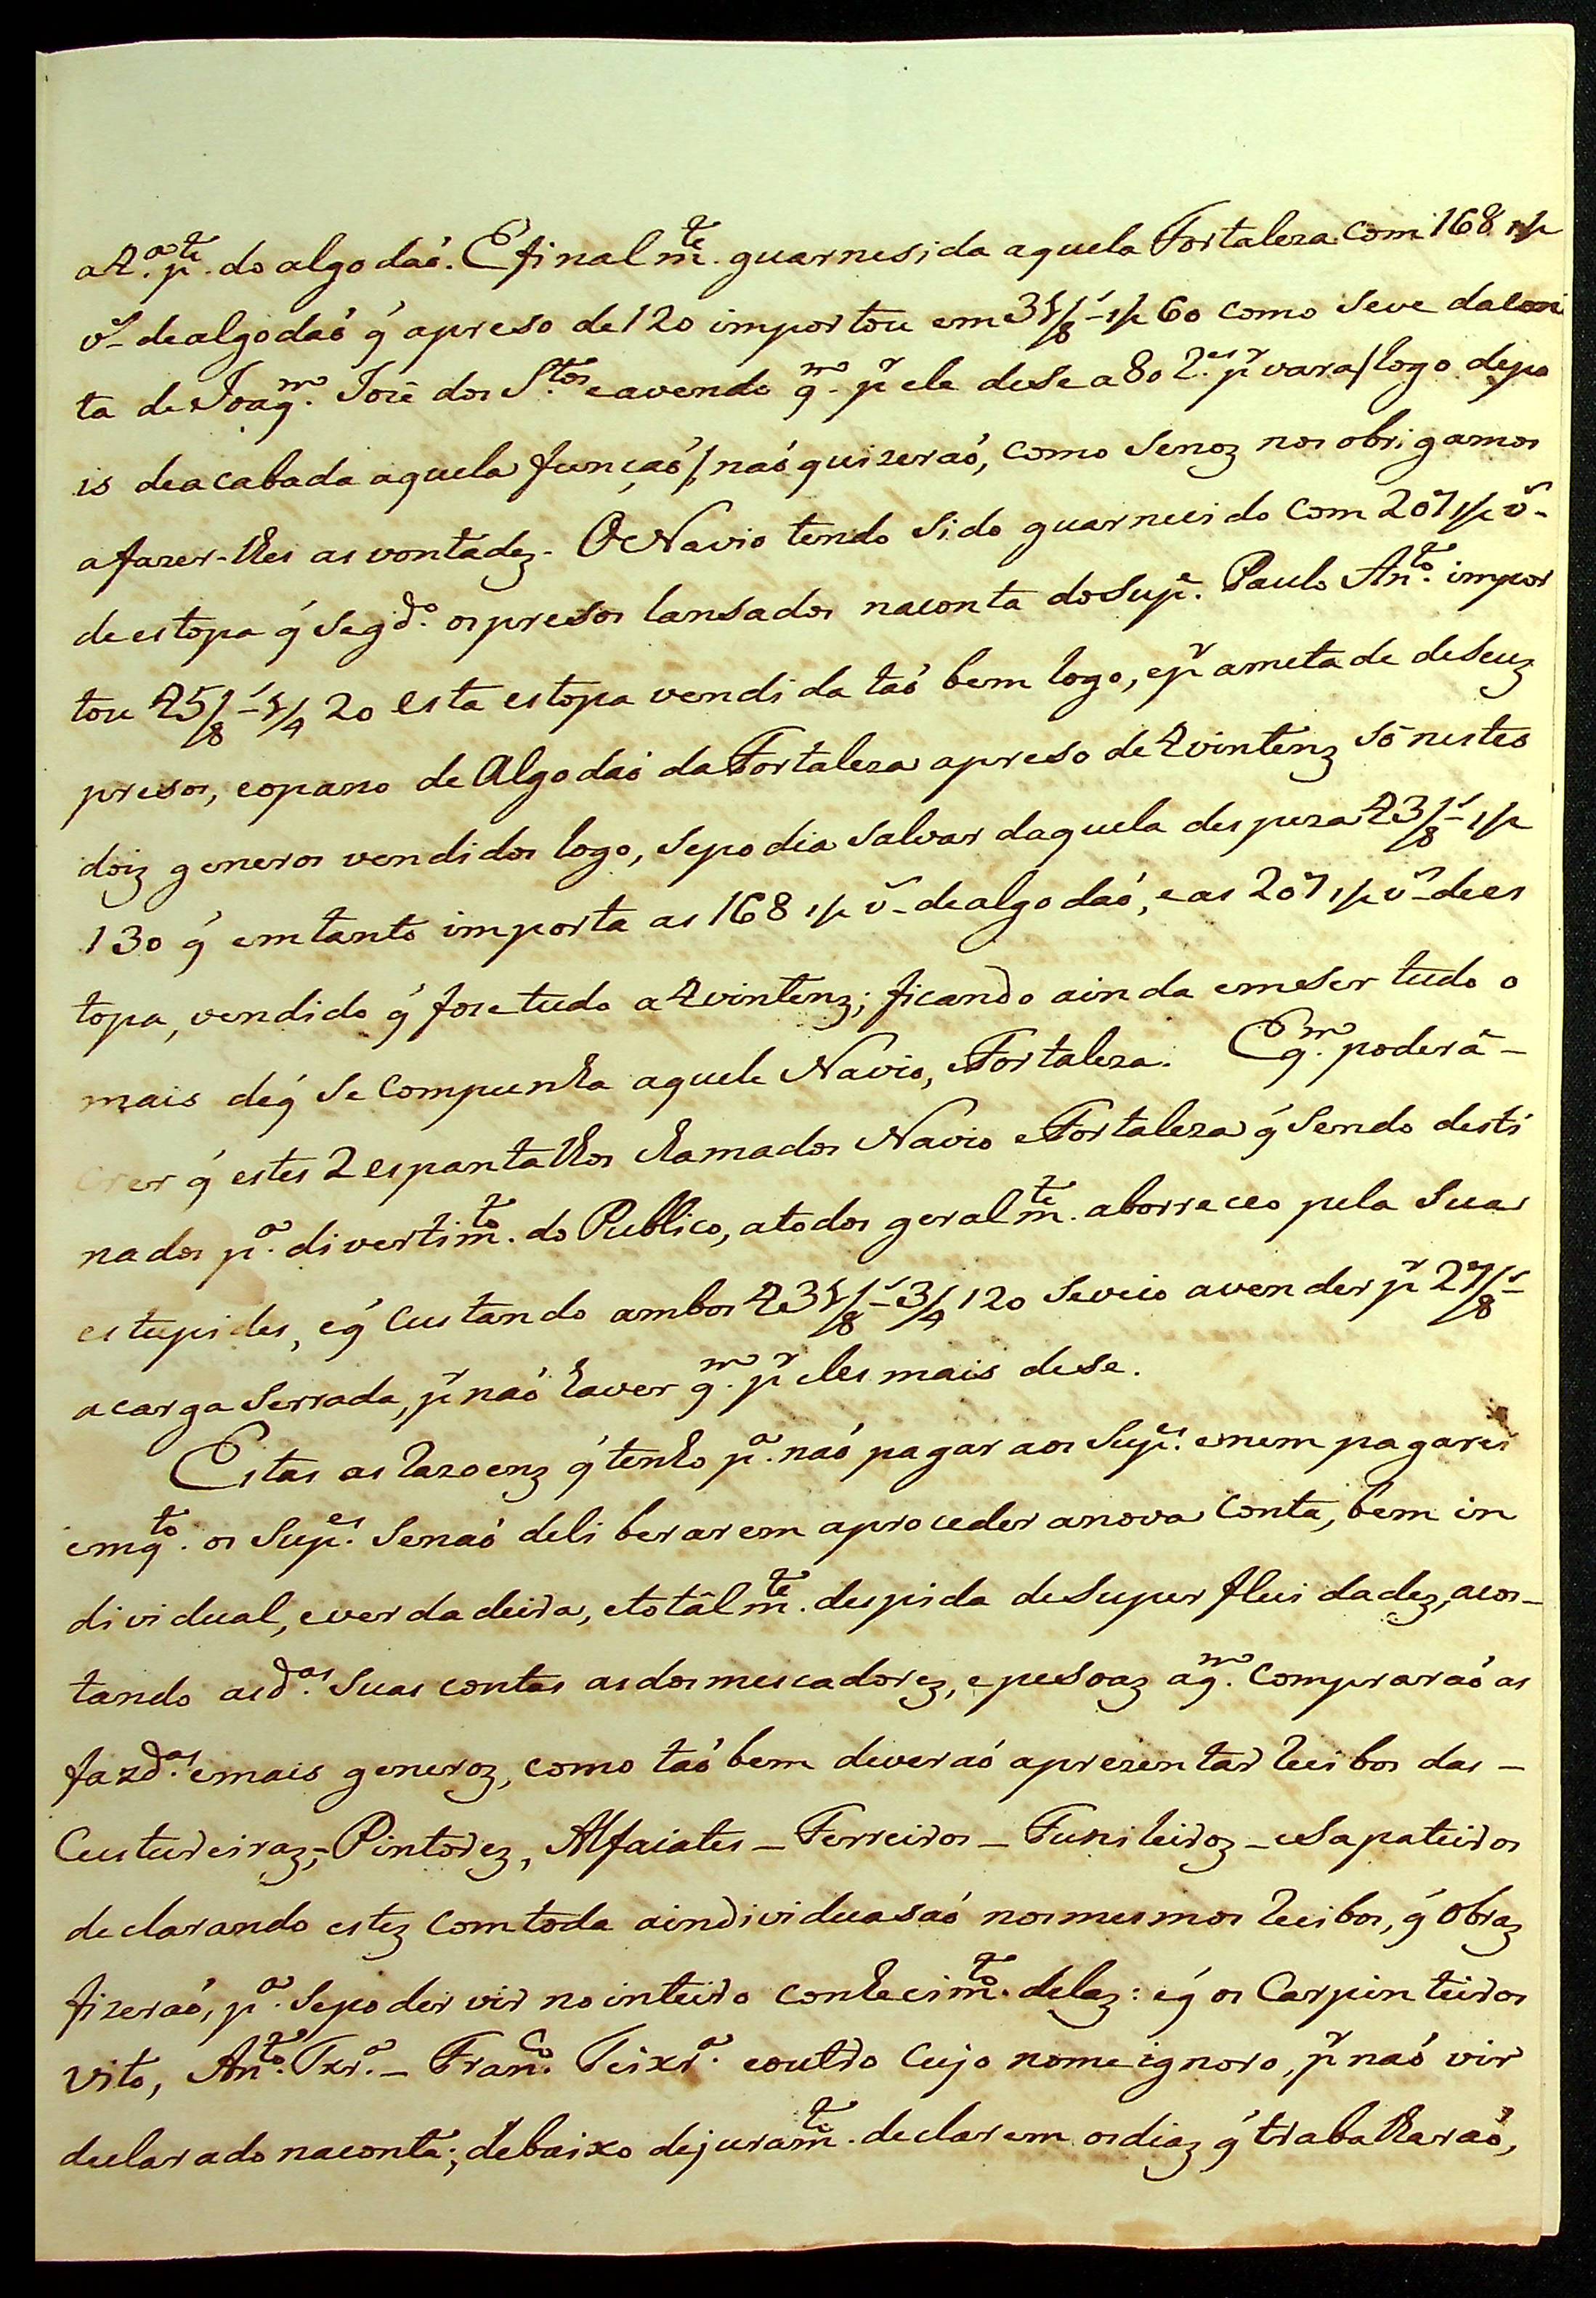 a 4.ª p.te do algodaõ. E final m.te guarnesida aquela Fortaleza com 168 1/2
v.s de algodaõ q̃ apreso de 120 importou em 31/8.s 1/2 60 como seve dacon
ta de Joaq.m Jozê dos S.tos eavendo q.m p.r ele dese a 80 r.es p.r vara/logo depo
is deacabada aquela funçaõ/, naõ quizeraõ, como senoz nos obrigamos
afazer-lhes as vontadez. O Navio tendo sido guarnecido com 207 1/2 v.s
de estopa q̃ seg.do os presos lansados naconta do Sup.e Paulo An.to impor
tou 45/8.s 1/4 20 esta estopa vendida taõ bem logo, ep.r ametade deseuz
presos, eopano de Algodaõ da Fortaleza apreso de 4 vintenz sô nestes
doiz generos vendidos logo, sepodia salvar daquela despeza 23/8.s 1/2
130 q̃ emtanto importa as 168 1/2 v.s dealgodaõ, eas 207 1/2 v.s dees
topa, vendido q̃ fose tudo a 4 vintenz; ficando ainda emser tudo o
mais deq̃ se compunha aquele Navio, e Fortaleza. E q.m poderâ -
crer q̃ estes 2 espantalhos chamados Navio e Fortaleza q̃ sendo desti
nados p.a divertim.to do Publico, atodos geralm.te aborreceo pela sua
estupides, eq̃ custando ambos 431/8.s 3/4 120 seveio avender p.r 27/8.s
acarga serrada, p.r naõ haver q.m p.r eles mais dese.
Estas as razoenz q̃ tenho p.a naõ pagar aos Sup.es enem pagarei
emq.to os Sup.es senaõ deliberarem aproceder anova conta, bem in
dividual, everdadeira, etotâlm.te despida de superfluidadez, acos-
tando asd.as suas contas as dos mercadorez, epesoaz aq.m compraraõ as
fazd.as emais generoz, como taõ bem deveraõ aprezentar recibos das -
Custureiraz,- Pintorez, Alfaiates - Ferreiros - Funileiroz - esapateiros
declarando estez com toda aindividuasaõ nosmesmos recibos, q̃ obraz
fizeraõ, p.a sepoder vir nointeiro conhecim.to delaz: eq̃ os Carpinteiros
Vito, An.to Txr.a - Fran.co Teixr.a eoutro cujo nome ignoro, p.r naõ vir
declarado naconta; debaixo dejuram.to declarem osdiaz q̃ trabalharaõ,